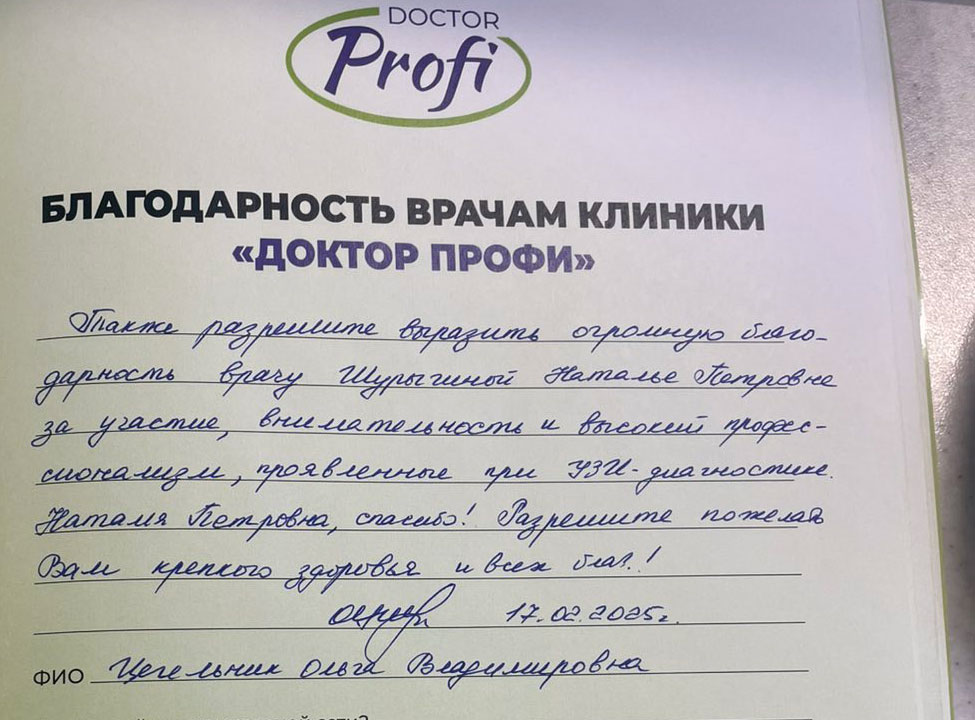 DOCTOR
Profi
БЛАГОДАРНОСТЬ ВРАЧАМ КЛИНИКИ
«ДОКТОР ПРОФИ»
Также разрешите выразить огромную благо-
дарность врачу Шурыгиной Наталье Петровне
за участие, внимательность и высокий профес-
сионализм, проявленные при УЗИ-диагностике.
Наталия Петровна, спасибо! Разрешите пожелать
Вам крепкого здоровья и всех благ!
17.02.2025г.
ФИО Цегельник Ольга Владимировна